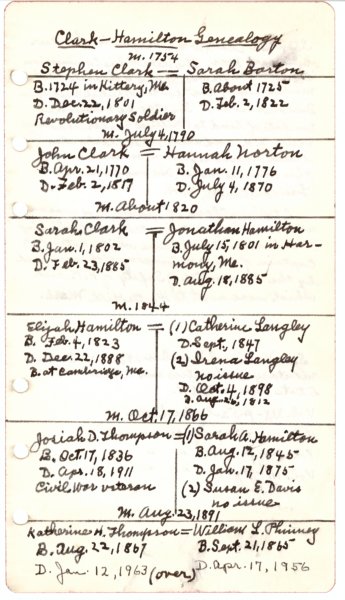 Clark — Hamilton Genealogy
m. 1754
Stephen Clark = Sarah Barton
B. 1724 in Kittery, Me. B. About 1725
D. Dec. 22, 1801 D. Feb. 2, 1822
Revolutionary Soldier
m. July 4, 1790
John Clark = Hannah Norton
B. Apr. 21, 1770 B. Jan. 11, 1776
D. Feb. 2, 1817 D. July 4, 1870
m. About 1820
Sarah Clark = Jonathan Hamilton
B. Jan. 1, 1802 B. July 15, 1801 in Har-
D. Feb. 23, 1885 mony, Me.
D. Aug. 18, 1885
m. 1844
Elijah Hamilton = (1) Catherine Langley
B. Feb. 4, 1823 D. Sept., 1847
D. Dec. 22, 1888 (2) Irena Langley
B. at Cambridge, Me. no issue
D. Oct. 4, 1898
B. Aug. 26, 1812
m. Oct. 17, 1866
Josiah D. Thompson = (1) Sarah A. Hamilton
B. Oct. 17, 1836 B. Aug. 12, 1845
D. Apr. 18, 1911 D. Jan. 17, 1875
Civil War veteran (2) Susan E. Davis
no issue
m. Aug. 23, 1891
Katherine H. Thompson = William L. Phinney
B. Aug. 22, 1867 B. Sept. 21, 1865
D. Jan. 12, 1963 (over) D. Apr. 17, 1956